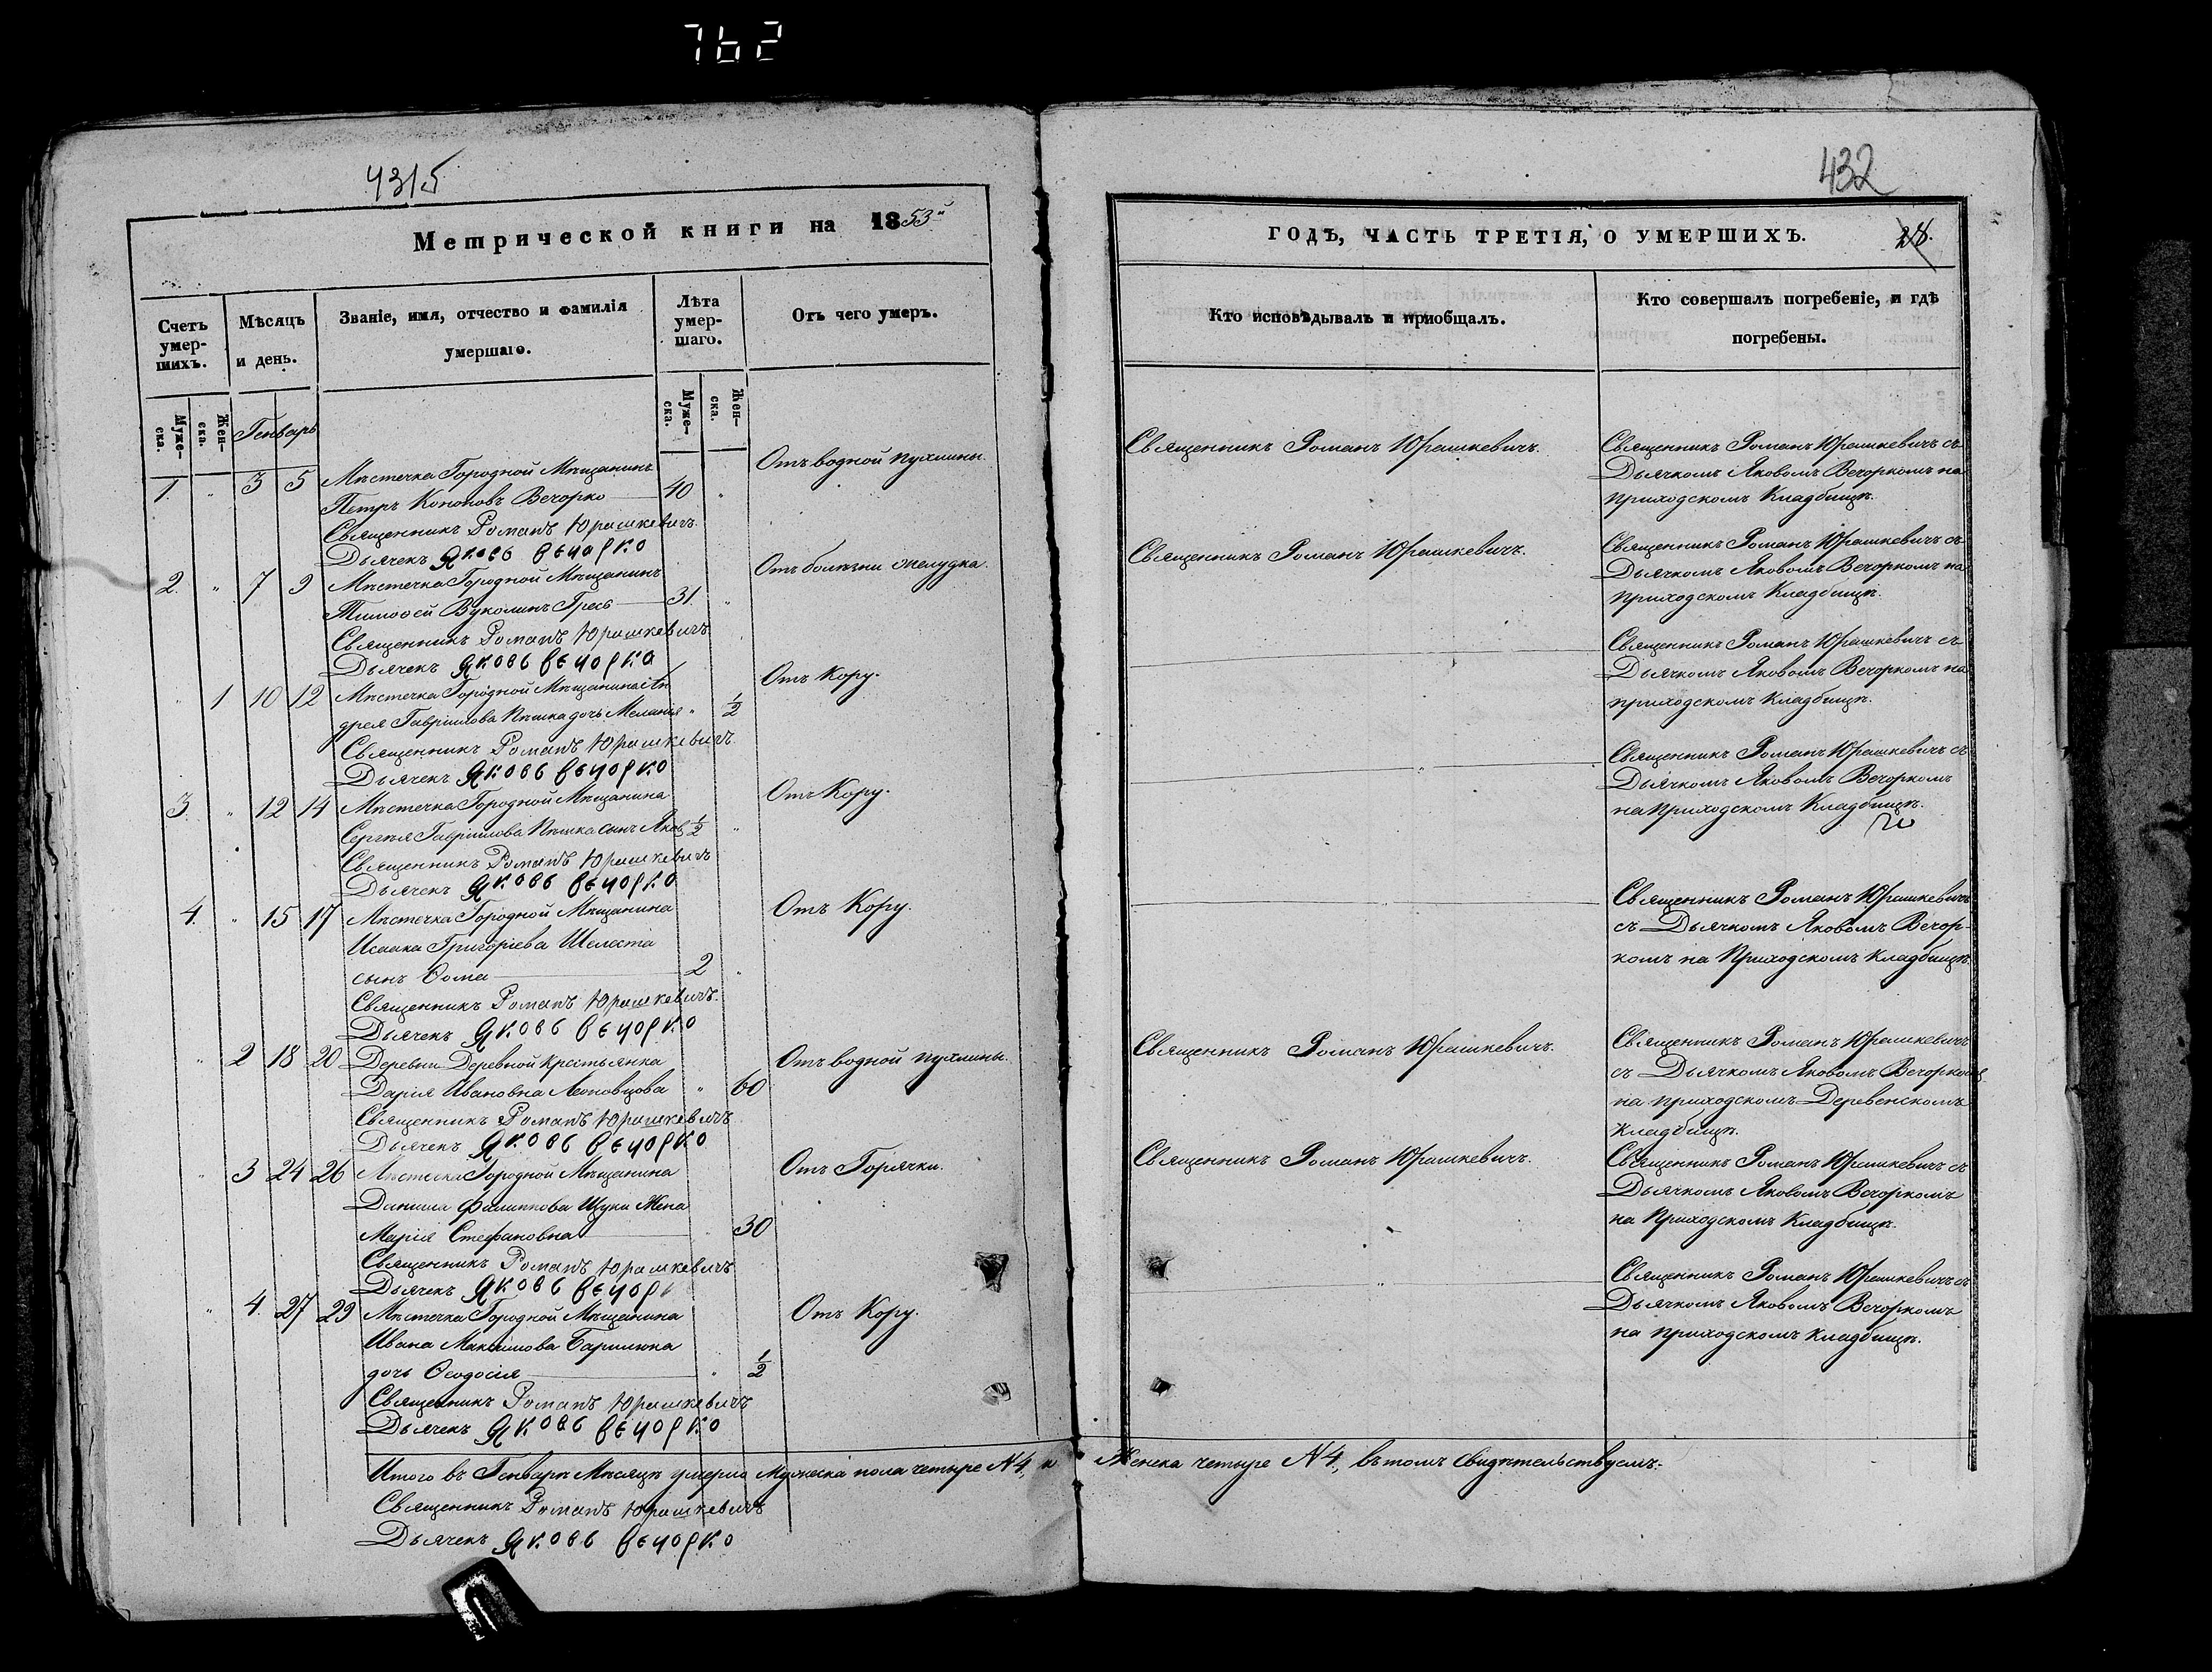 762
4315
Метрической книги на 1853й
Счетъ умер-шихъ.
Мѣсяцъ и день.
Званіе, имя, отчество и фамилія умершаго.
Лѣта умер-шаго.
Отъ чего умеръ.
Муже-ска.
Жен-ска.
Генварь
Муже-ска.
Жен-ска.
1. " 3 5 Мѣстечка Городной Мѣщанинъ
Петръ Кононовъ Вечорко 40 "
Отъ водной пухлины.
Священникъ Романъ Юрашкевичъ.
Дьячекъ Яковъ Вечорко
2. " 7 9 Мѣстечка Городной Мѣщанинъ
Тимоѳей Вуколинъ Гресь 31. "
Отъ болѣзни желудка.
Священникъ Романъ Юрашкевичъ
Дьячекъ Яковъ Вечорко
" 1 10 12 Мѣстечка Городной Мѣщанина Ан
дрея Гавріилова Пѣшка дочь Меланія " 1/2
Отъ Кору.
Священникъ Романъ Юрашкевичъ
Дьячекъ Яковъ Вечорко
3. " 12 14 Мѣстечка Городной Мѣщанина
Сергѣя Гавріилова Пѣшка сынъ Яковъ 1/2 "
Отъ Кору.
Священникъ Романъ Юрашкевичъ
Дьячекъ Яковъ Вечорко
4. " 15 17 Мѣстечка Городной Мѣщанина
Исаака Григоріева Шеласта
сынъ Ѳома 2 "
Отъ Кору.
Священникъ Романъ Юрашкевичъ.
Дьячекъ Яковъ Вечорко
" 2 18 20 Деревни Деревной Крестьянка
Дарія Ивановна Леоновцова " 60
Отъ водной пухлины.
Священникъ Романъ Юрашкевичъ
Дьячекъ Яковъ Вечорко
" 3 24 26 Мѣстечка Городной Мѣщанина
Данила Филиппова Щуки Жена
Марія Стефановна " 30
Отъ Горячки.
Священникъ Романъ Юрашкевичъ
Дьячекъ Яковъ Вечорк
" 4. 27 29 Мѣстечка Городной Мѣщанина
Ивана Максимова Барилюка
дочь Ѳеодосія " 1/2
Отъ Кору.
Священникъ Романъ Юрашкевичъ
Дьячекъ Яковъ Вечорко
Итого въ Генварѣ Мѣсяцѣ умерло Мужеска пола четыре N4, и
Священникъ Романъ Юрашкевичъ
Дьячекъ Яковъ Вечорко
432
ГОДЪ, ЧАСТЬ ТРЕТІЯ, О УМЕРШИХЪ.
28.
Кто исповѣдывалъ и пріобщалъ.
Кто совершалъ погребеніе, и гдѣ погребены.
Священникъ Романъ Юрашкевичъ.
Священникъ Романъ Юрашкевичъ съ
Дьячкомъ Яковомъ Вечоркомъ на
приходскомъ Кладбищѣ.
Священникъ Романъ Юрашкевичъ.
Священникъ Романъ Юрашкевичъ съ
Дьячкомъ Яковомъ Вечоркомъ на
приходскомъ Кладбищѣ.
Священникъ Романъ Юрашкевичъ съ
Дьячкомъ Яковомъ Вечоркомъ на
приходскомъ Кладбищѣ.
Священникъ Романъ Юрашкевичъ съ
Дьячкомъ Яковомъ Вечоркомъ
на Приходскомъ Кладбищѣ.
Священникъ Романъ Юрашкевичъ
съ Дьячкомъ Яковомъ Вечор-
комъ на Приходскомъ Кладбищѣ.
Священникъ Романъ Юрашкевичъ.
Священникъ Романъ Юрашкевичъ
съ Дьячкомъ Яковомъ Вечоркомъ
на приходскомъ Деревенскомъ
Кладбищѣ.
Священникъ Романъ Юрашкевичъ.
Священникъ Романъ Юрашкевичъ съ
Дьячкомъ Яковомъ Вечоркомъ
на Приходскомъ Кладбищѣ.
Священникъ Романъ Юрашкевичъ съ
Дьячкомъ Яковомъ Вечоркомъ
на приходскомъ кладбищѣ.
Женска четыре N4., въ томъ свидѣтельствуемъ.